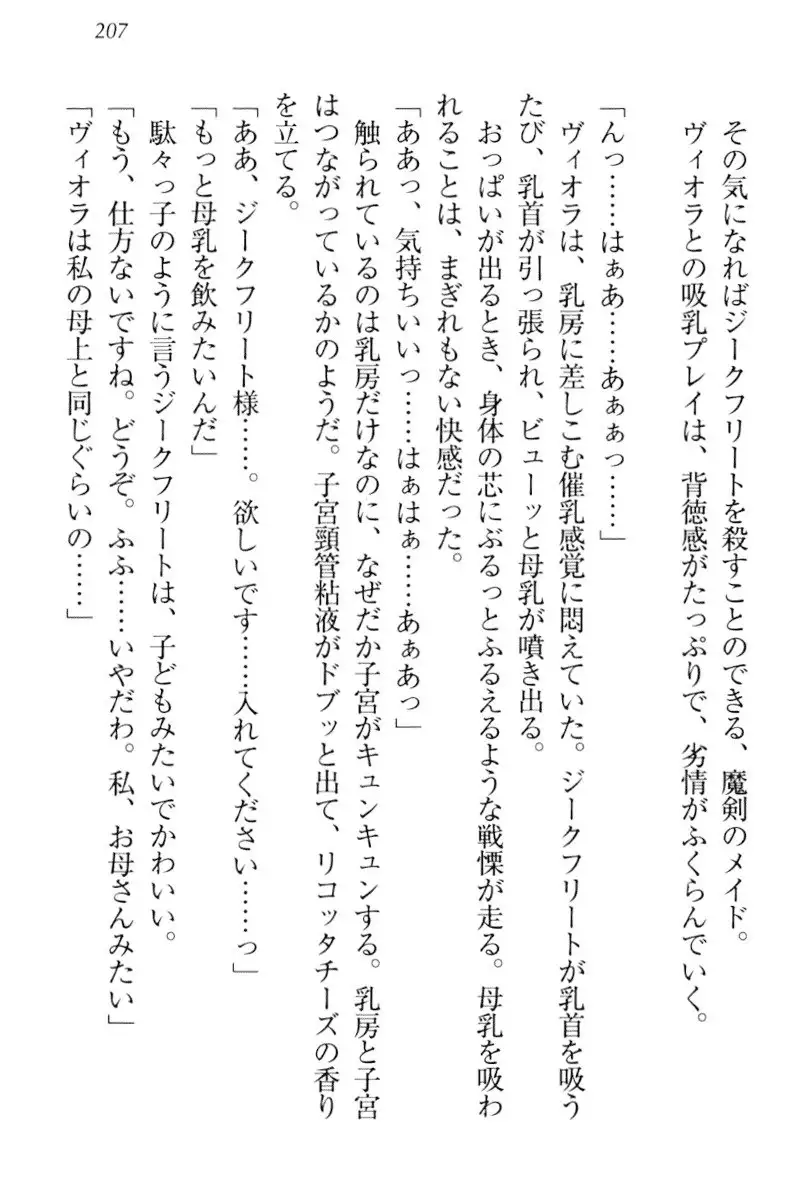 207
その気になればジークフリートを殺すことのできる、魔剣のメイド。
ヴィオラとの吸乳プレイは、背徳感がたっぷりで、劣情がふくらんでいく。
「んっ……はぁあ……あぁぁっ……」
ヴィオラは、乳房に差しこむ催乳感覚に悶えていた。ジークフリートが乳首を吸う
たび、乳首が引っ張られ、ビューッと母乳が噴き出る。
おっぱいが出るとき、身体の芯にぶるっとふるえるような戦慄が走る。母乳を吸わ
れることは、まぎれもない快感だった。
「ああっ、気持ちいいっ……はぁはぁ……あぁあっ」
触られているのは乳房だけなのに、なぜだか子宮がキュンキュンする。乳房と子宮
はつながっているかのようだ。子宮頸管粘液がドブッと出て、リコッタチーズの香り
を立てる。
「ああ、ジークフリート様……。欲しいです……入れてください……っ」
「もっと母乳を飲みたいんだ」
駄々っ子のように言うジークフリートは、子どもみたいでかわいい。
「もう、仕方ないですね。どうぞ。ふふ……いやだわ。私、お母さんみたい」
「ヴィオラは私の母上と同じぐらいの……」